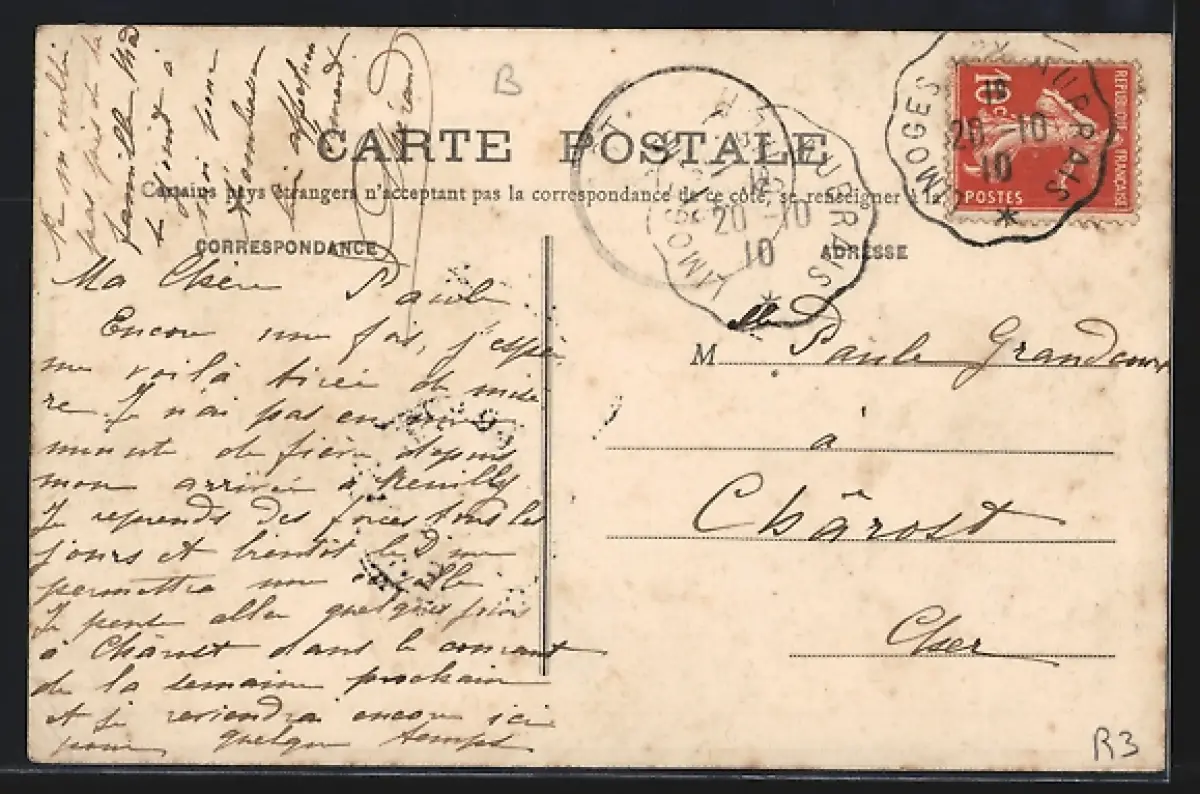 B
CARTE POSTALE
Certains pays étrangers n'acceptant pas la correspondance de ce côté, se renseigner à la
CORRESPONDANCE
ADRESSE
RÉPUBLIQUE FRANÇAISE
10c
POSTES
LIMOGES
20 - 10
10
LIMOGES
20 - 10
10
Ma Chère Paule
Encore une fois, j'espère
me voilà tirée de misè
re Je n'ai pas eu
de fièvre depuis
mon arrivée à Reuilly
Je reprends des forces tous les
jours et bientôt le Dr me
permettra
Je peut aller quelques fois
à Chârost dans le courant
de la semaine prochaine
et je reviendrai encore ici
pour quelque temps
Ne m'oublie
pas près de la
famille
joint à
moi pour
t'embrasser
affectueu
sement
M lle Paule Grandcour
à
Chârost
Cher
R3